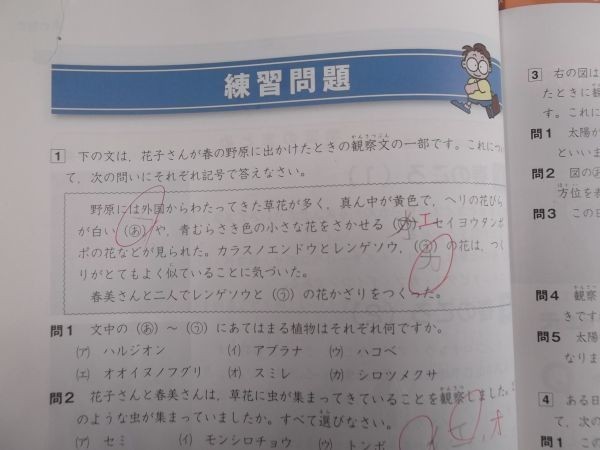 練習問題
1 下の文は，花子さんが春の野原に出かけたときの観察文の一部です。これについ
て，次の問いにそれぞれ記号で答えなさい。
野原には外国からわたってきた草花が多く，真ん中が黄色で，ヘリの花びら
が白い（あ）や，青むらさき色の小さな花をさかせる（い），セイヨウタンポ
エ
ポの花などが見られた。カラスノエンドウとレンゲソウ，（う）の花は，つく
カ
りがとてもよく似ていることに気づいた。
春美さんと二人でレンゲソウと（う）の花かざりをつくった。
問1 文中の（あ）～（う）にあてはまる植物はそれぞれ何ですか。
(ア) ハルジオン (イ) アブラナ (ウ) ハコベ
(エ) オオイヌノフグリ (オ) スミレ (カ) シロツメクサ
問2 花子さんと春美さんは，草花に虫が集まってきていることを観察しました。
のような虫が集まっていましたか。すべて選びなさい。
(ア) セミ (イ) モンシロチョウ (ウ) トンボ
オ
3 右の図は
たときに観
す。これに
問1 太陽が
といいま
問2 図の
方位を表
問3 この日
問4 観察
きです
問5 太陽
なりま
4 ある日
て，次の
問1 この